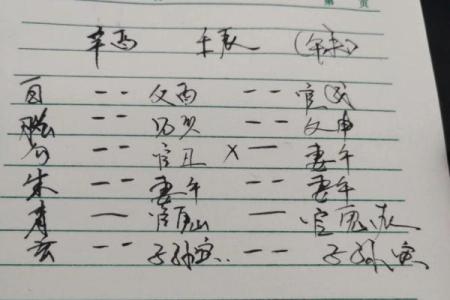 第 页
壬辰 (午未)
白 -- 父酉 -- 官戌
螣 -- 兄亥 -- 父申
勾 -- 官丑 × — 妻午
朱 -- 妻午 -- 妻午
青 — 官 — 官鬼辰
玄 -- 子孙寅 -- 子孙寅